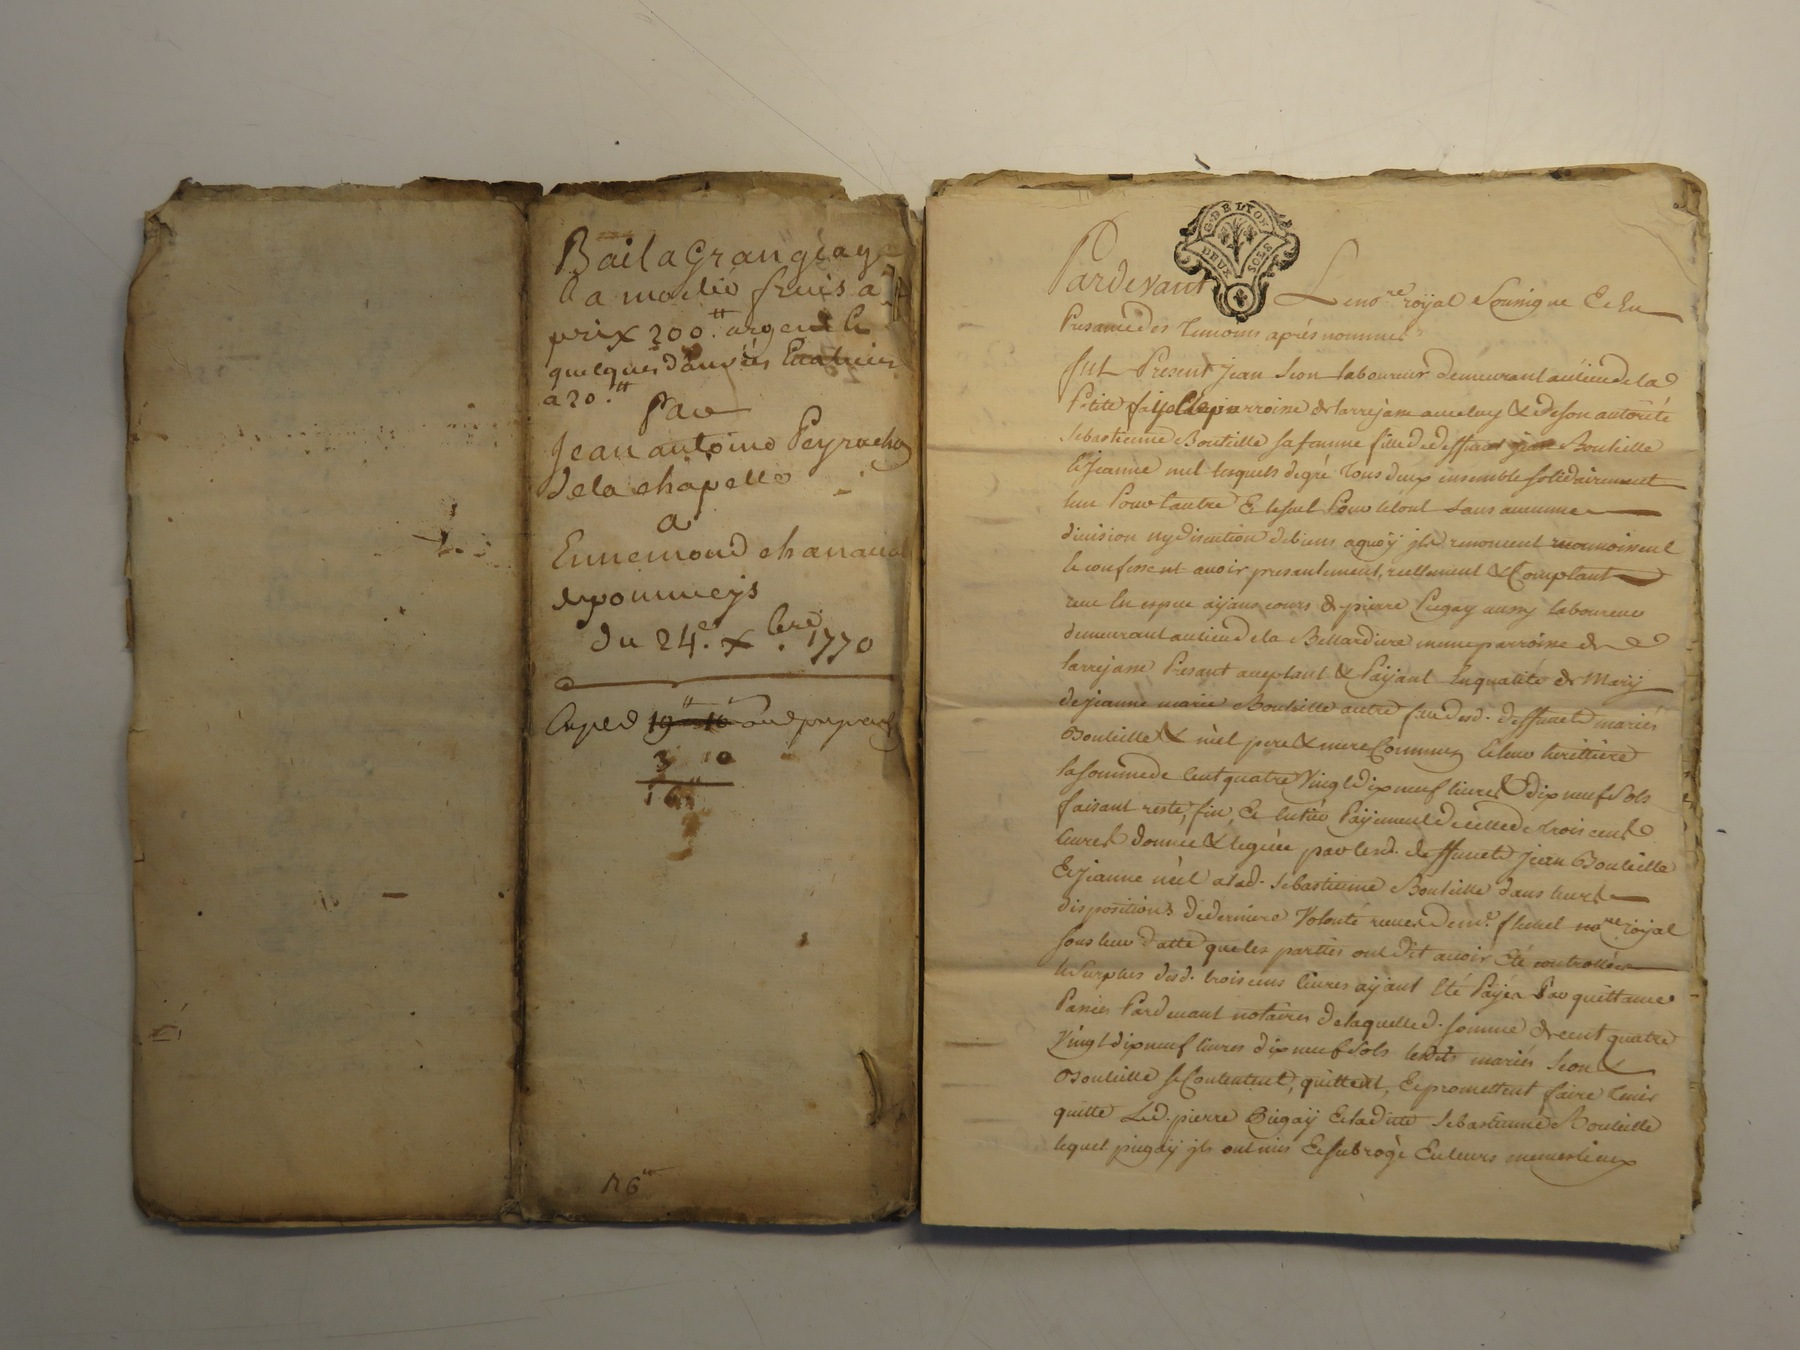 Bail a Grangeage
a moitié fruis a
prix 200.tt argent &
quelques danrées Evaluées
a 20.tt
Par
Jean antoine Peyrachon
de la chapelle
a
Ennemond chanavat
de pommeys
du 24.e Xbre 1770
19tt 10
3 10
16tt
G. DE LYON
DEUX SOLS
Pardevant Le nore royal Soussigné Et En
Presance des temoins aprés nommés
fut Present Jean Sion laboureur demeurant au lieu de la
Petite fayolle parroisse de larrajasse avec luy & de son autorité
Sebastienne Bouteille sa femme fille de deffunt jean Bouteille
& Jeanne niel lesquels de gré tous deux ensemble solidairement
lun Pour lautre Et le seul Pour le tout sans aucune
division ny discution de biens a quoÿ jls renoncent reconnoissent
& confessent avoir presantement, reellement & Comptant
reçu En espece aÿans cours de pierre Pugay aussy laboureur
demeurant au lieu de la Billardiere meme parroisse de
larrajasse Presant acceptant & Paÿant En qualité de Marÿ
de jeanne marie Bouteille autre fille desd. deffunts mariés
Bouteille & niel pere & mere Communs & leur heritiere
la somme de Cent quatre Vingt dix neuf livres & dix neuf sols
faisant reste, fin, & Entier Paÿement de celle de trois cent
livres donnée & leguée par lesd. deffunts jean Bouteille
Et jeanne niel a lad. Sebastienne Bouteille dans leurs
dispositions de derniere Volonté reçues de me. nore roÿal
sous leur datte que les parties ont dit avoir Eté controllées
le surplus desd. trois cens livres aÿant Eté Payée Par quittance
Passée Pardevant notaires de laquelle d. somme de cent quatre
Vingt dix neuf livres dix neuf sols lesdits mariés Sion &
Bouteille se Contentent, quittent, Et promettent faire tenir
quitte Led. pierre Pugaÿ Et ladite Sebastienne Bouteille
lequel pugaÿ jls ont mis Et subrogé En leurs memes lieux